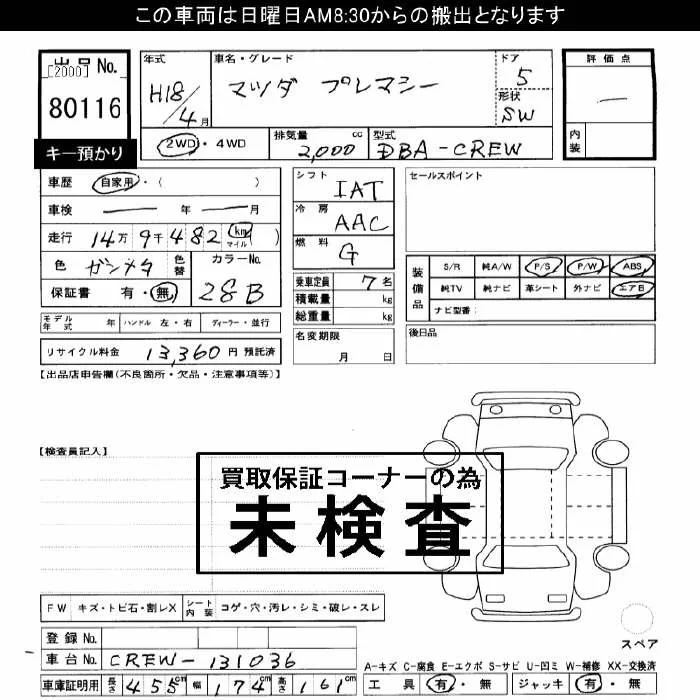 この車両は日曜日AM8:30からの搬出となります
出品No. [2000]
80116
キー預かり
年式 H18/4月
車名・グレード マツダ プレマシー
ドア 5
形状 SW
2WD・4WD
排気量 2,000 cc
型式 DBA-CREW
評価点 —
内装
車歴 自家用・( )
車検 — 年 — 月
走行 14万9千482 (km マイル)
色 ガンメタ 色替
カラーNo. 28B
保証書 有・無
モデル年式 年 ハンドル 左・右 ディーラー・並行
リサイクル料金 13,360円 預託済
シフト IAT
冷房 AAC
燃料 G
乗車定員 7名
積載量 kg
総重量 kg
名変期限 月 日
セールスポイント
装備品
S/R 純A/W P/S P/W ABS
純TV 純ナビ 革シート 外ナビ エアB
ナビ型番:
後日品
【出品店申告欄(不良箇所・欠品・注意事項等)】
【検査員記入】
買取保証コーナーの為
未検査
FW キズ・トビ石・割レX シート内装 コゲ・穴・汚レ・シミ・破レ・スレ
登録No.
車台No. CREW-131036
車庫証明用 長さ 455cm 幅 174cm 高さ 161cm
スペア
A-キズ C-腐食 E-エクボ S-サビ U-凹ミ W-補修 XX-交換済
工具 有・無 ジャッキ 有・無